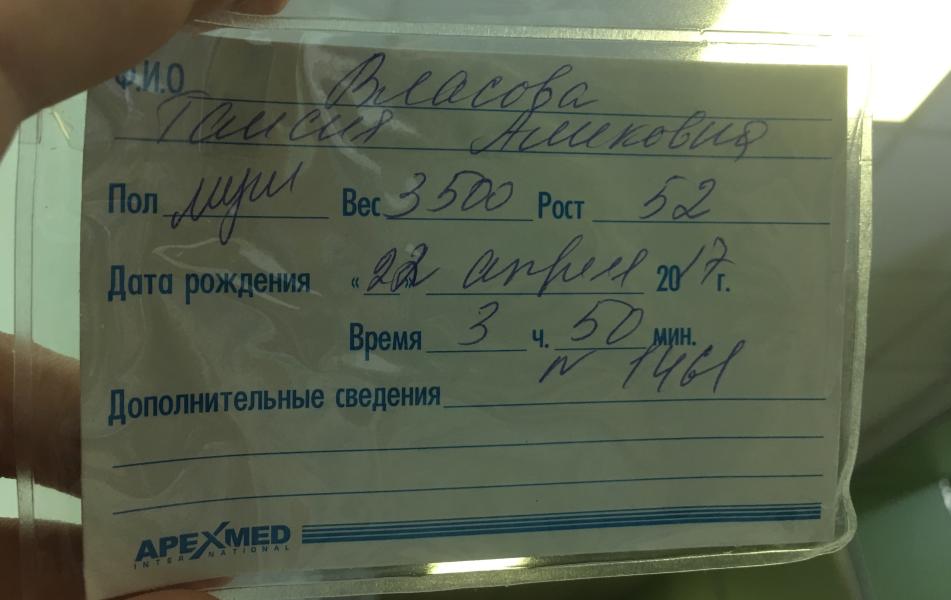 Ф.И.О Власова
Таисия Аликовна
Пол муж Вес 3500 Рост 52
Дата рождения «22» апреля 2017 г.
Время 3 ч. 50 мин.
N 1461
Дополнительные сведения
APEXMED
INTERNATIONAL